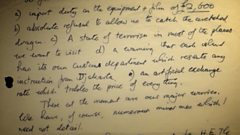 a) import duty on the equipment & film of £2,600
b) absolute refusal to allow us to catch the wretched
dragon c) A state of terrorism in most of the places
we want to visit d) a warning that each island
has its own customs department which resents any
instruction from Djakarta e) an artificial exchange
rate which trebles the price of everything.
These at the moment are our major worries.
We have, of course, numerous minor ones which I
need not detail.